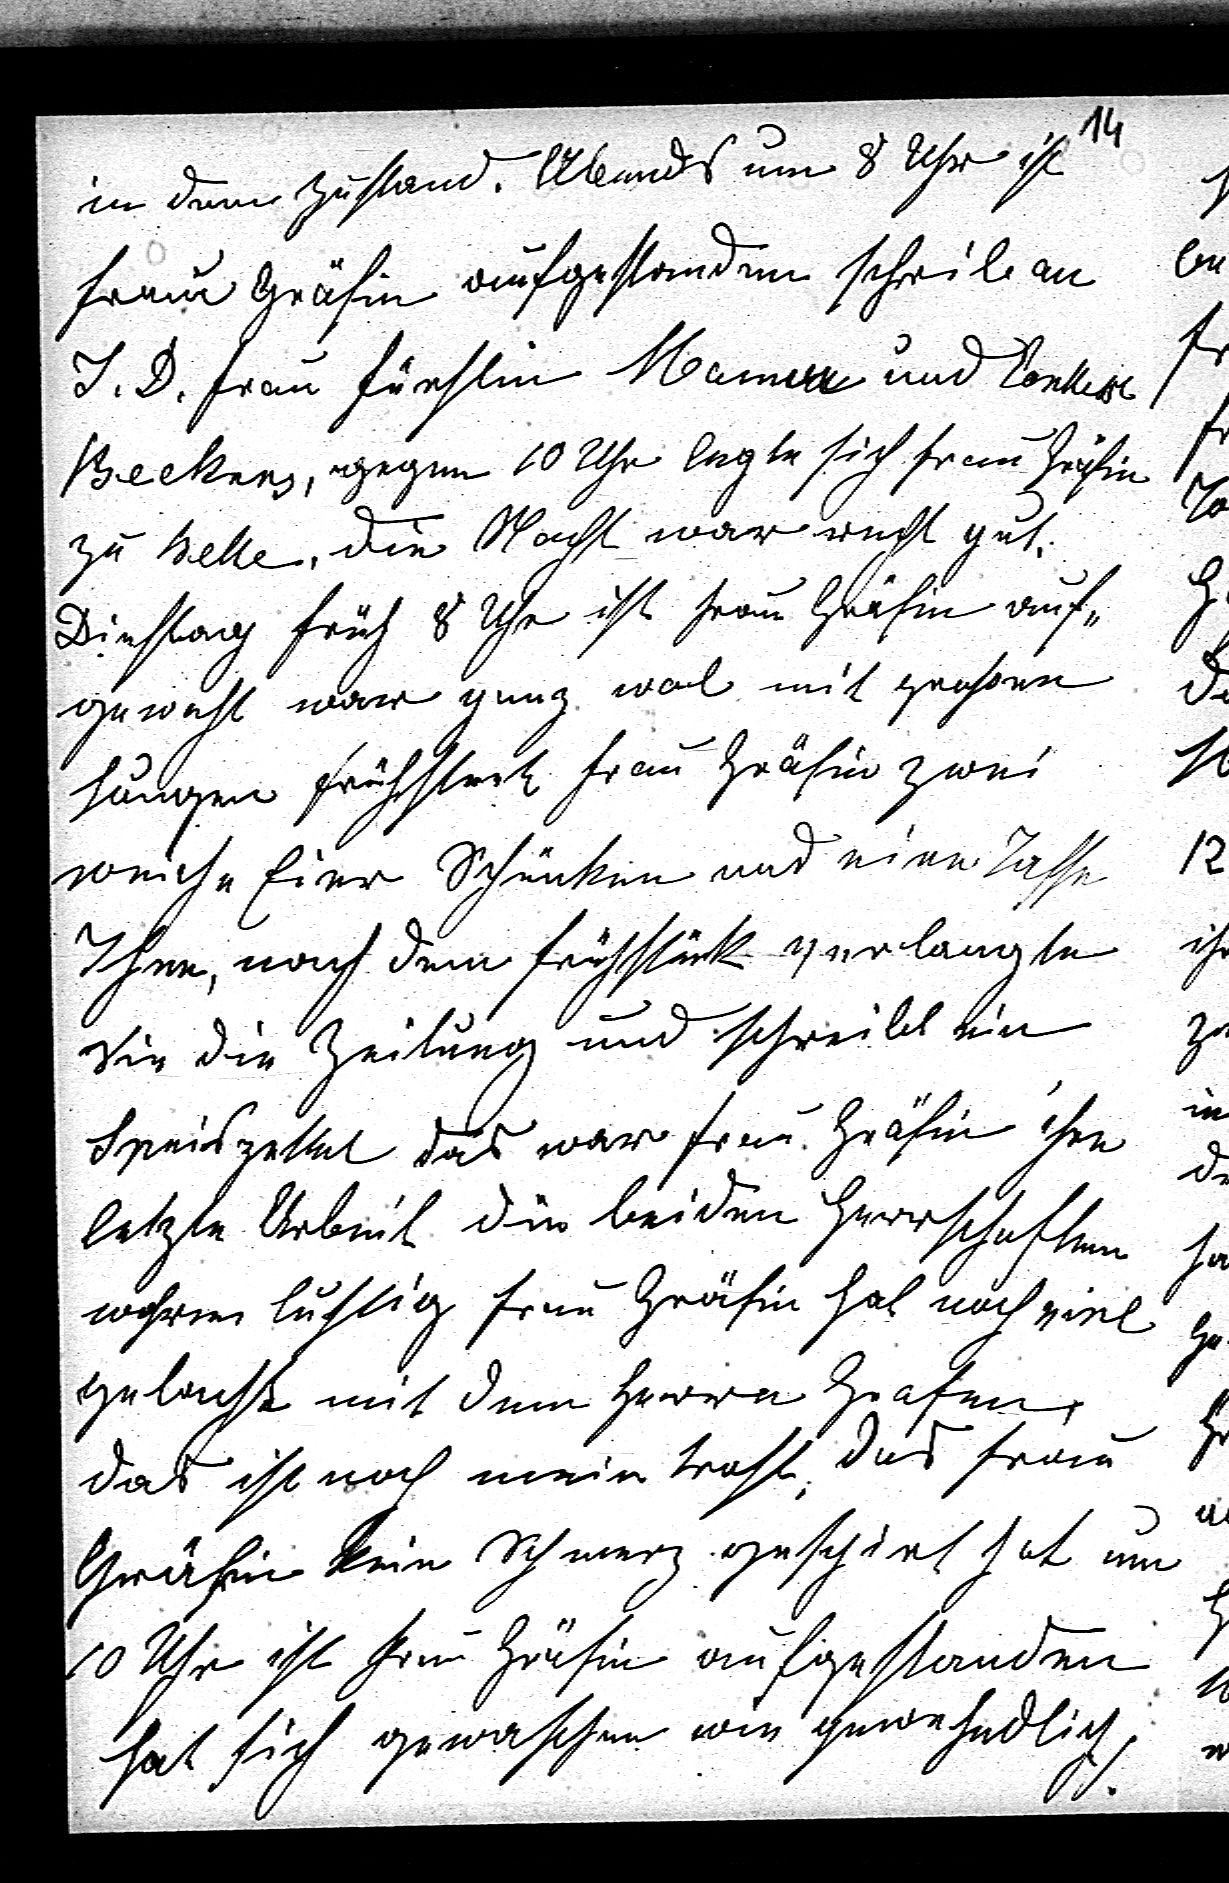 14
in dem Zustand. Abends um 8 Uhr ist
Frau Gräfin aufgestanden schrib an
I. D. Frau Fürstin Mama und
Beckers, gegen 10 Uhr legte sich Frau Gräfin
zu Bette, die Nacht war recht gut.
Dienstag früh 8 Uhr ist Frau Gräfin auf„
gewacht war ganz wol mit großen
Hunger frühstückt Frau Gräfin zwei
weiche Eier Schinken und eine Tasse
Thee, nach dem Frühstück verlangte
Sie die Zeitung und schreibt ein
Speiszettel das war Frau Gräfin ihre
letzte Arbeit die beiden Herrschaften
wahren lustig Frau Gräfin hat noch viel
gelacht mit dem Herrn Grafen,
das ist noch mein Trost, das Frau
Gräfin kein Schmerz gespürt hat um
10 Uhr ist Frau Gräfin aufgestanden
hat sich gewaschen wie gewehndlich
./.